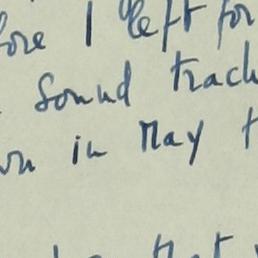 fore I left for
Sound track
on in May t
that